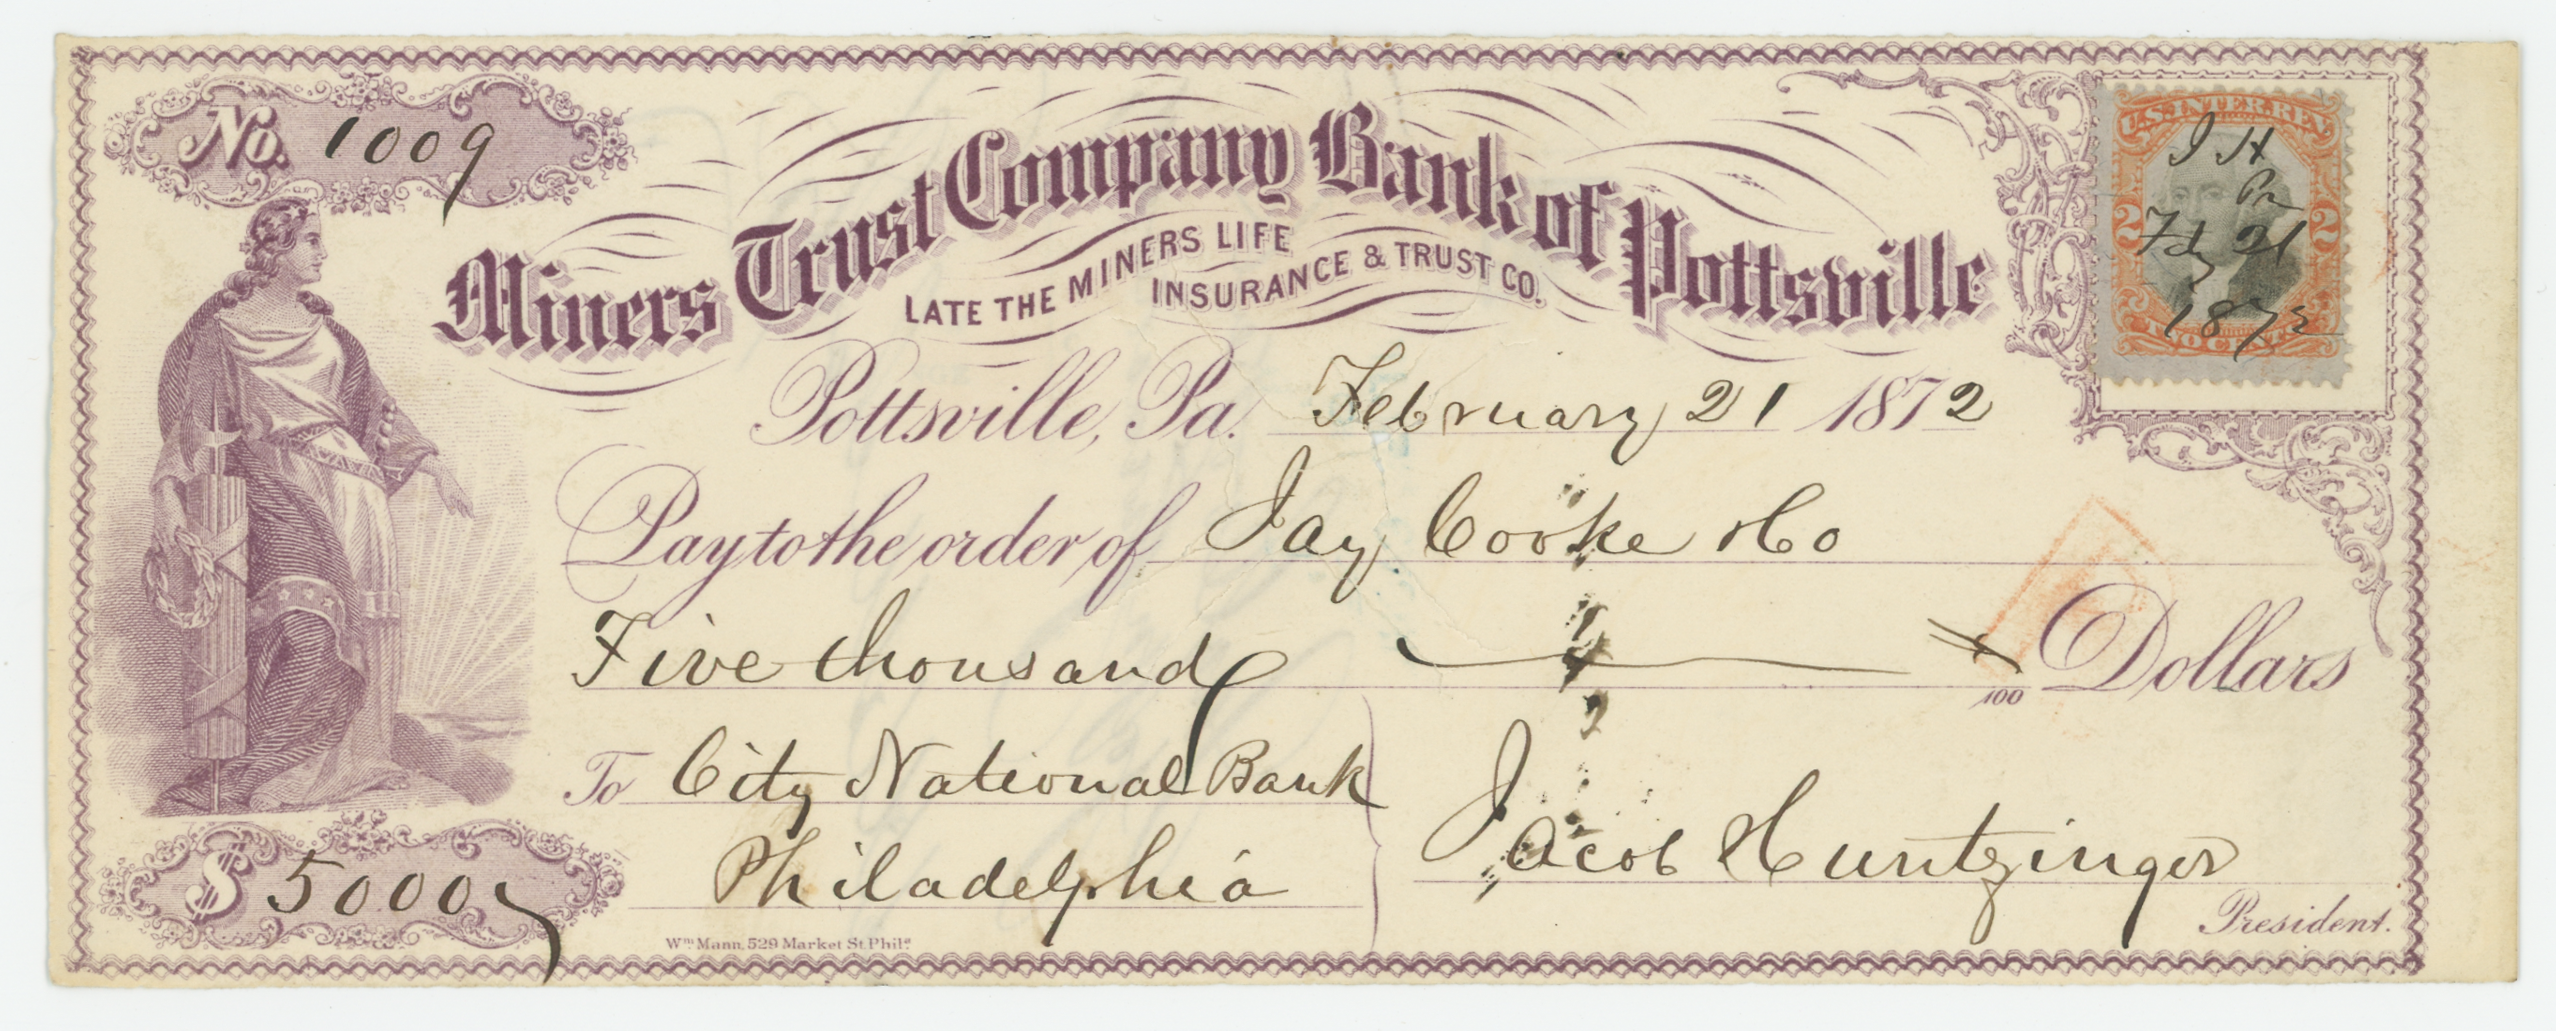 No. 1009
Miners Trust Company Bank of Pottsville
LATE THE MINERS LIFE
INSURANCE & TRUST CO.
U.S. INTER. REV.
J H
Pr
2 2
Feby 21
1872
TWO CENTS
Pottsville, Pa. February 21 1872
Pay to the order of Jay Cooke & Co
Five thousand /100 Dollars
To City National Bank
Philadelphia
Jacob Huntzinger
President.
$ 5000
Wm. Mann, 529 Market St. Phila.